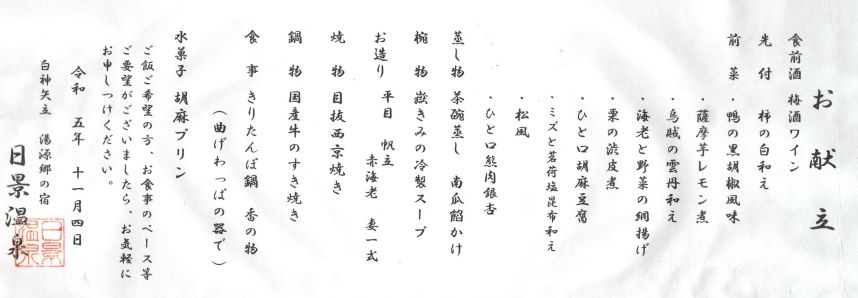 お献立
食前酒 梅酒ワイン
先付 柿の白和え
前菜 ・鴨の黒胡椒風味
・薩摩芋レモン煮
・烏賊の雲丹和え
・海老と野菜の網揚げ
・栗の渋皮煮
・ひと口胡麻豆腐
・ミズと茗荷塩昆布和え
・松風
・ひと口熊肉銀杏
蒸し物 茶碗蒸し 南瓜餡かけ
椀物 嶽きみの冷製スープ
お造り 平目 帆立
赤海老 妻一式
焼物 目抜西京焼き
鍋物 国産牛のすき焼き
食事 きりたんぽ鍋 香の物
(曲げわっぱの器で)
水菓子 胡麻プリン
ご飯ご希望の方、お食事のペース等
ご要望がございましたら、お気軽に
お申しつけください。
令和 五年 十一月四日
白神矢立 湯源郷の宿
日景温泉
日景温泉